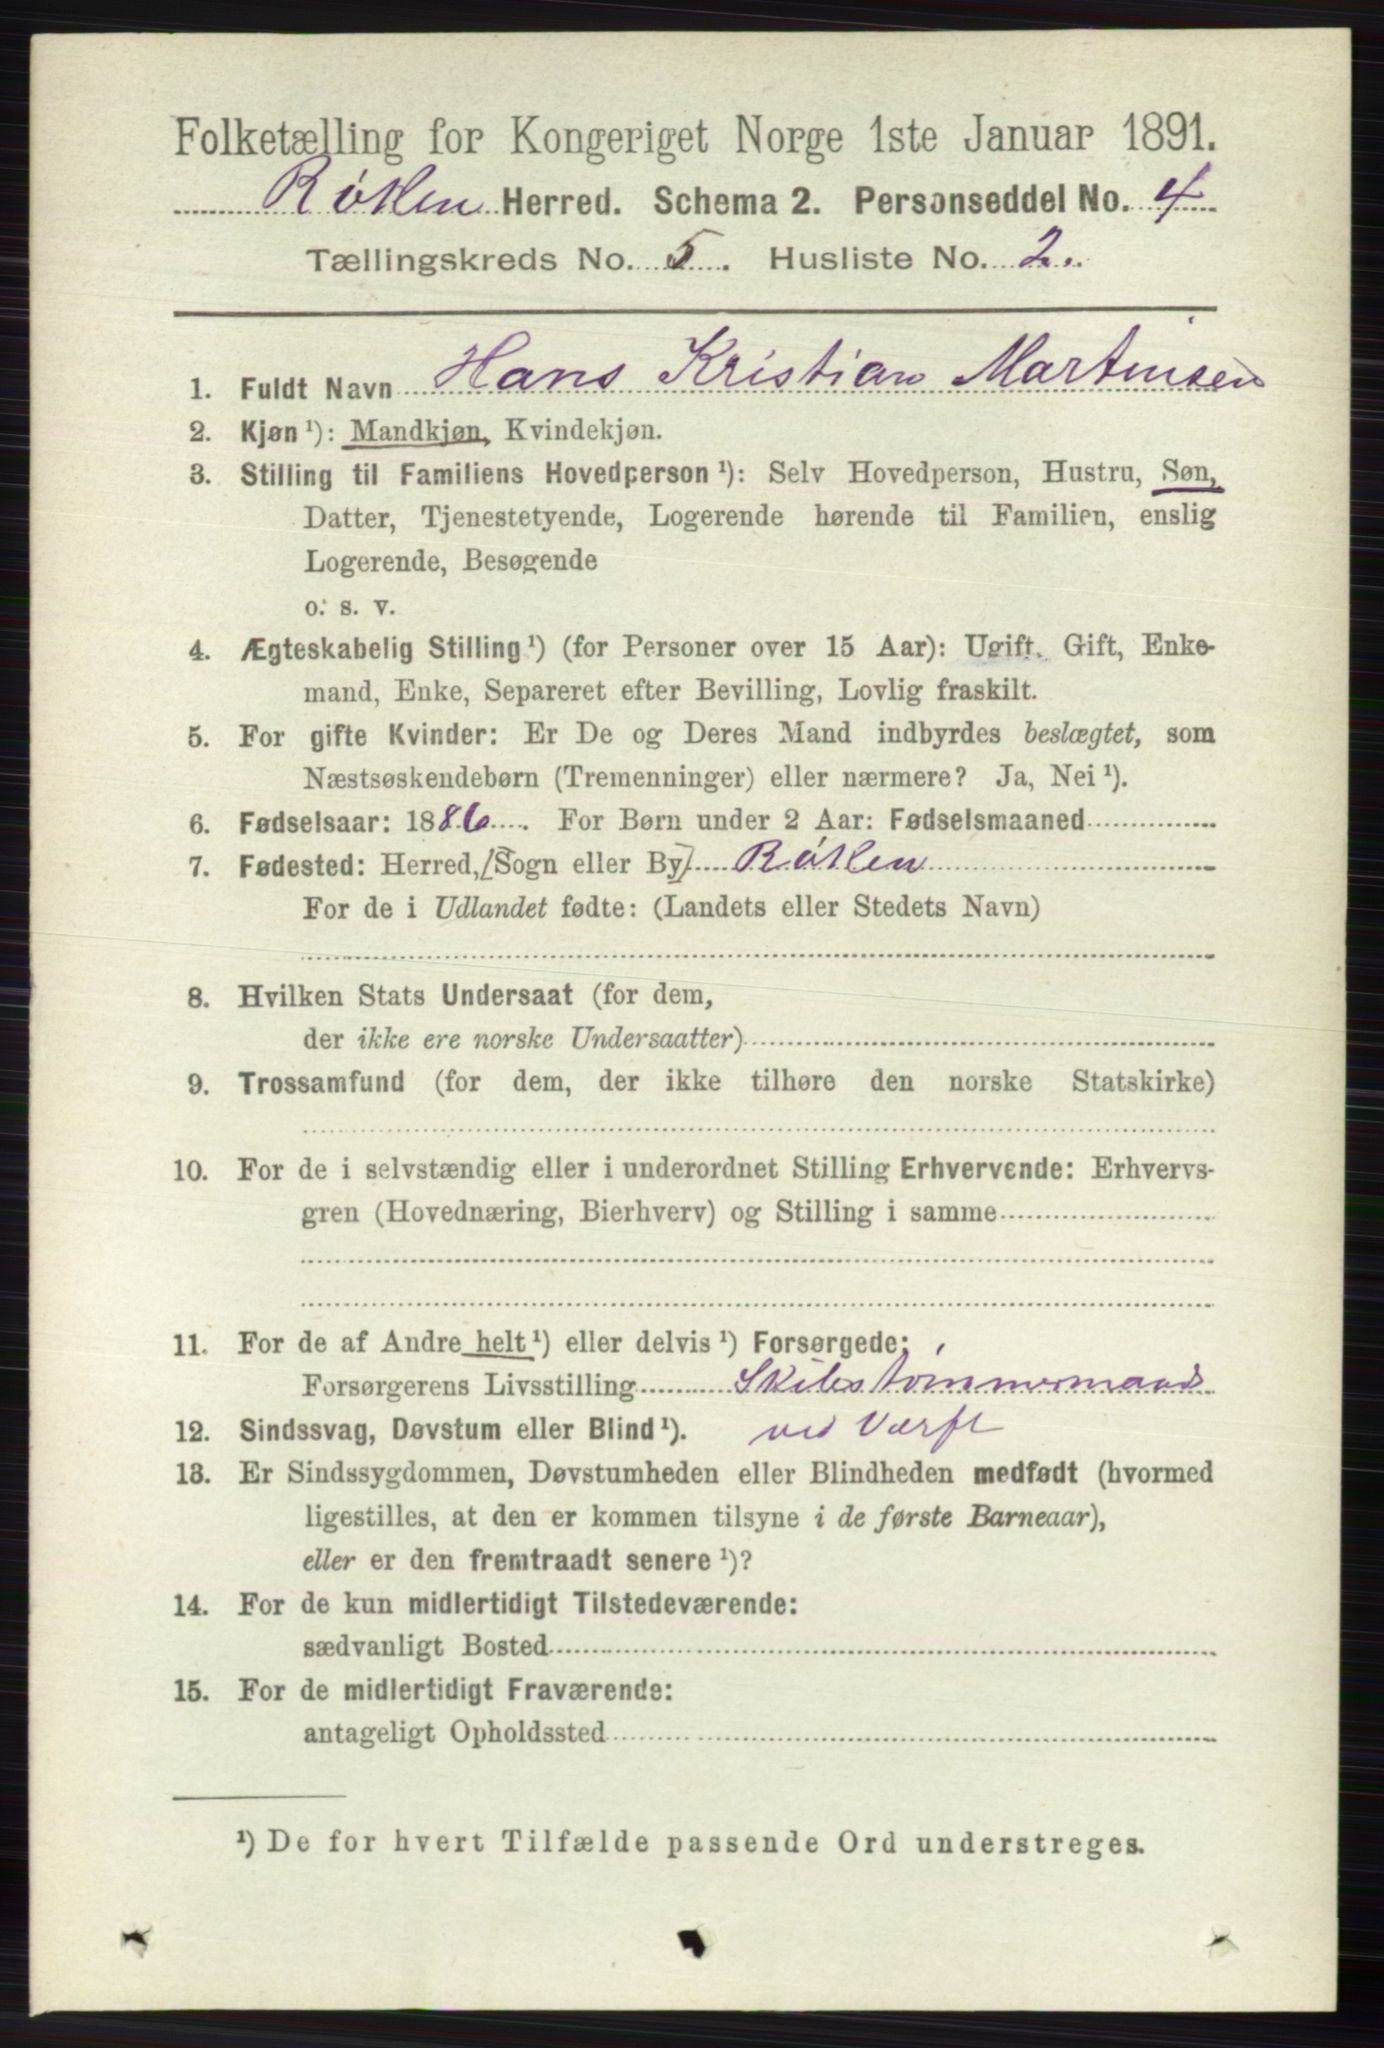 Folketælling for Kongeriget Norge 1ste Januar 1891.
Røken Herred. Schema 2. Personseddel No. 4
Tællingskreds No. 5. Husliste No. 2.
1. Fuldt Navn Hans Kristian Martinsen
2. Kjøn ¹): Mandkjøn, Kvindekjøn.
3. Stilling til Familiens Hovedperson ¹): Selv Hovedperson, Hustru, Søn,
Datter, Tjenestetyende, Logerende hørende til Familien, enslig
Logerende, Besøgende
o. s. v.
4. Ægteskabelig Stilling ¹) (for Personer over 15 Aar): Ugift, Gift, Enke-
mand, Enke, Separeret efter Bevilling, Lovlig fraskilt.
5. For gifte Kvinder: Er De og Deres Mand indbyrdes beslægtet, som
Næstsøskendebørn (Tremenninger) eller nærmere? Ja, Nei ¹).
6. Fødselsaar: 1886. For Børn under 2 Aar: Fødselsmaaned
7. Fødested: Herred, [Sogn eller By] Røken
For de i Udlandet fødte: (Landets eller Stedets Navn)
8. Hvilken Stats Undersaat (for dem,
der ikke ere norske Undersaatter)
9. Trossamfund (for dem, der ikke tilhøre den norske Statskirke)
10. For de i selvstændig eller i underordnet Stilling Erhvervende: Erhvervs-
gren (Hovednæring, Bierhverv) og Stilling i samme
11. For de af Andre helt ¹) eller delvis ¹) Forsørgede:
Forsørgerens Livsstilling Skibstømmermand
12. Sindssvag, Døvstum eller Blind ¹). ved Værft
13. Er Sindssygdommen, Døvstumheden eller Blindheden medfødt (hvormed
ligestilles, at den er kommen tilsyne i de første Barneaar),
eller er den fremtraadt senere ¹)?
14. For de kun midlertidigt Tilstedeværende:
sædvanligt Bosted
15. For de midlertidigt Fraværende:
antageligt Opholdssted
¹) De for hvert Tilfælde passende Ord understreges.